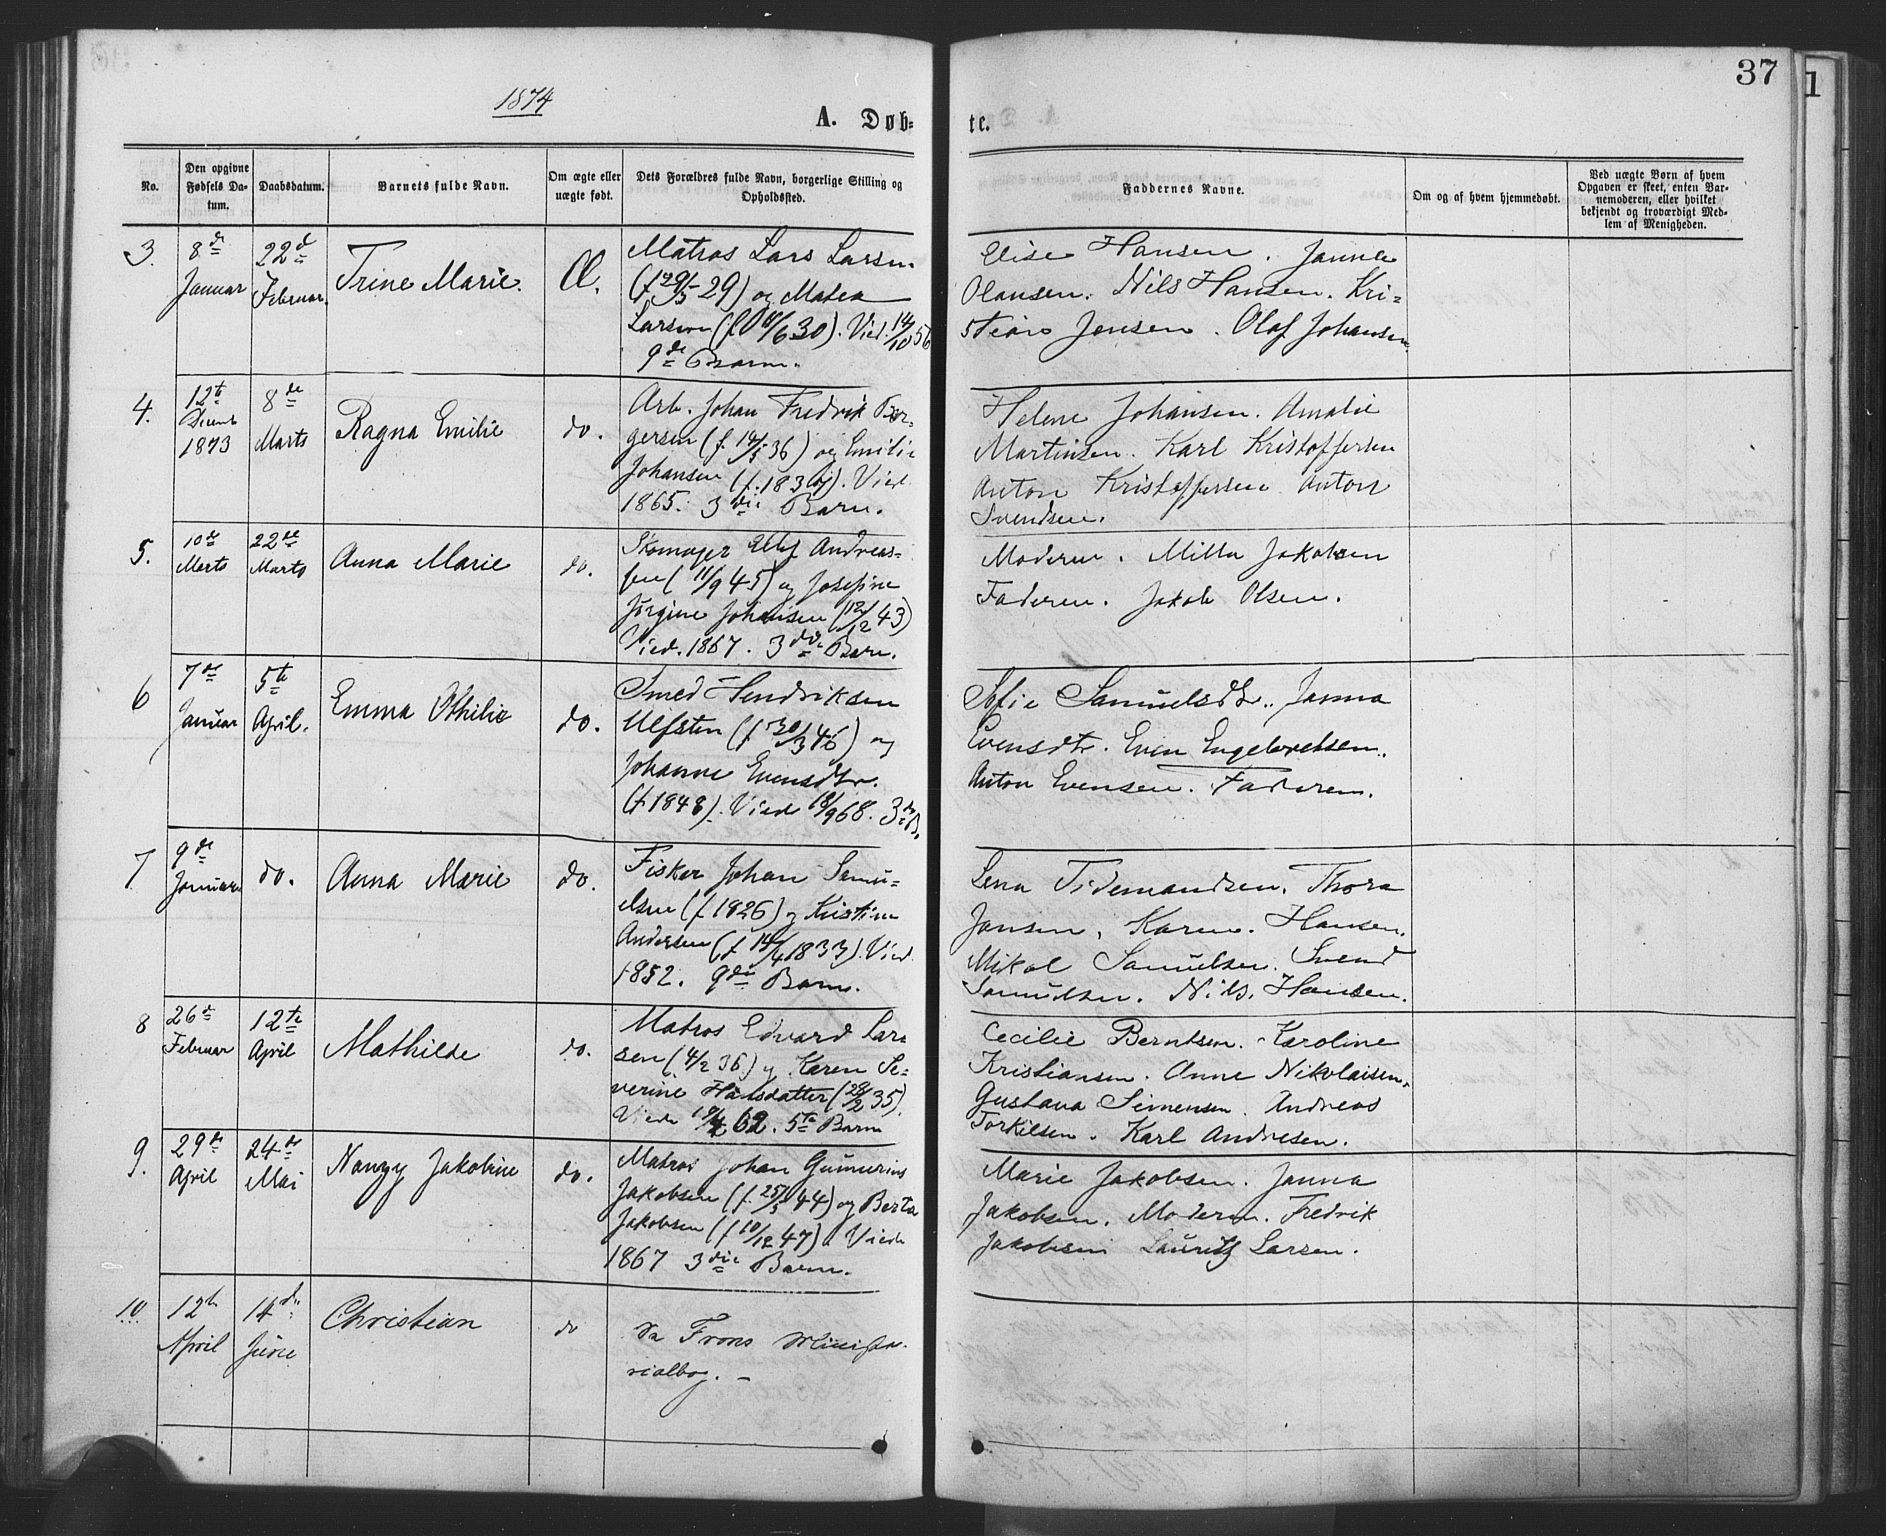 37
1
1874
A. Døb-
te.
No.
Den opgivne Fødsels Da-tum.
Daabsdatum.
Barnets fulde Navn.
Om ægte eller uægte født.
Dets Forældres fulde Navn, borgerlige Stilling og Opholdssted.
Faddernes Navne.
Om og af hvem hjemmedøbt.
Ved uægte Børn af hvem
Opgaven er skeet, enten Bar-
nemoderen, eller hvilket
bekjendt og troværdigt Med-
lem af Menigheden.
3.
8de
Januar
22de
Februar.
Trine Marie.
Æ.
Matros Lars Larsen
29) og Matea
Larsen (f. 30). Vied 14/10 56
9de Barn.
Elise Hansen. Janna
Olausen. Nils Hansen. Kri-
stian Jensen. Olaf Johansen.
4.
12te
Decemb
1873
8de
Marts
Ragna Emilie
do.
Arb. Johan Fredrik Bør-
gersen (f. 14/5 36) og Emilie
Johansen (f. 183). Vied
1865. 3die Barn.
Helene Johansen. Amalie
Martinsen. Karl Kristoffersen
Anton Kristoffersen Anton
Svendsen.
5.
10de
Marts
22de
Marts
Anna Marie
do.
Skomager Andreas-
sen (11/9 45) og Josefine
Jørgine Johansen (12/12 43)
Vied. 1867. 3die Barn.
Moderen. Milla Jakobsen
Faderen. Jakob Olsen.
6
7de
Januar
5te
April.
Emma Othilie
do.
Smed Hendriksen
Ulfsten (f 30/3 46) og
Johanne Evensdtr.
(f 1848). Viede 18/9 68. 3die B.
Sofie Samuelsdtr.. Janna
Evensdtr. Even Engebretsen.
Anton Evensen. Faderen.
7
9de
Januar
do.
Anna Marie
do.
Fisker Johan Samu-
elsen (f 1826) og Kristine
Andersen (f 14/4 1833). Vied
1852. 9de Barn.
Lena Tidemandsen. Thora
Jansen. Karen Hansen.
Mikal Samuelsen. Svend
Samuelsen. Nils Hansen.
8
26de
Februar
12te
April
Mathilde
do.
Matros Edvard Lar-
sen (4/2 36) og Karen Se-
verine Hansdatter (28/2 35).
Viede 62. 5te Barn
Cecilie Berntsen. Karoline
Kristiansen. Anne Nikolaisen.
Gustava Simensen. Andreas
Torkilsen. Karl Andresen.
9.
29de
April
24de
Mai
Nanzy Jakobine
do.
Matros Johan Gunnerius
Jakobsen (f. 25/5 44) og Berta
Jakobsen (f 10/12 47). Viede
1867 3die Barn.
Marie Jakobsen. Janna
Jakobsen. Moderen. Fredrik
Jakobsen Lauritz Larsen.
10
12te
April
14de
Juni
Christian
do
Frons Ministe-
rialbog. –